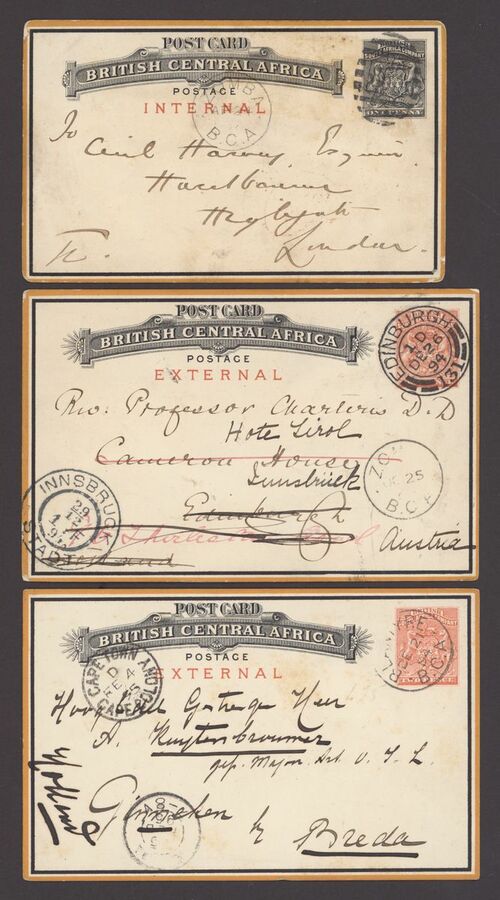 POST CARD
BRITISH CENTRAL AFRICA
POSTAGE
INTERNAL
ONE PENNY
B.C.A
To
Cecil Harvey Esquire
Haselbourne
Highgate
London.
POST CARD
BRITISH CENTRAL AFRICA
POSTAGE
EXTERNAL
EDINBURGH
DE 26
94
131
Rev. Professor Charteris D.D
Hotel Tirol
Cameron House
Innsbrück
Edinburgh
Austria
25
B.C.A
INNSBRUCK
29
12
STADT
POST CARD
BRITISH CENTRAL AFRICA
POSTAGE
EXTERNAL
BLANTYRE
B.C.A
CAPE TOWN
CAPE COLONY
D
FE 4
95
Hoog
A. Kuytenbrouwer
gep. Major Art. O. I. L.
Ginneken
by
Breda